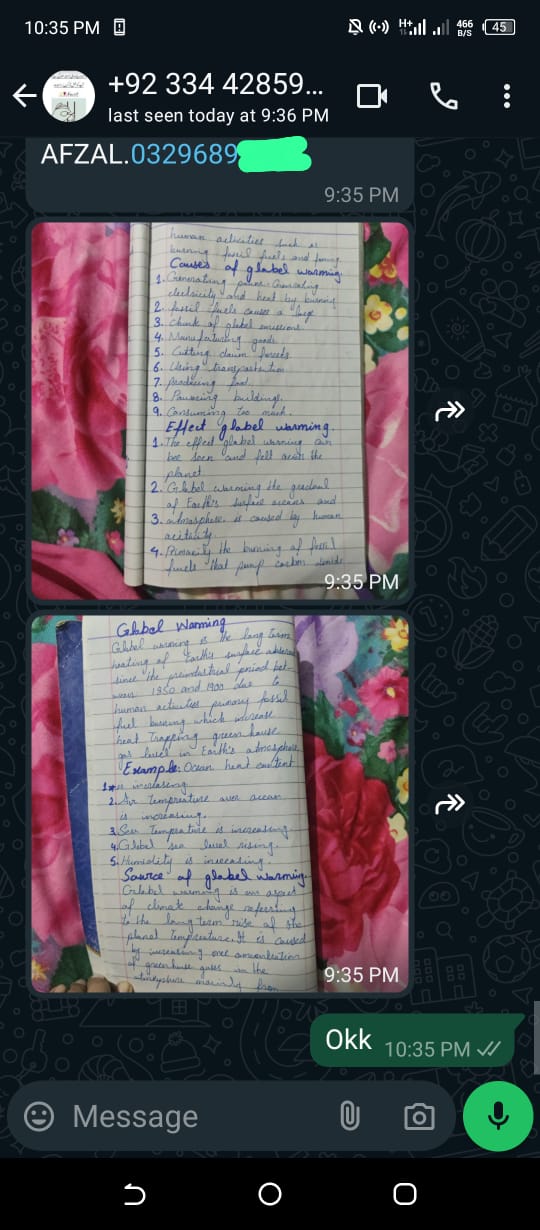 10:35 PM
H+
466
B/S
45
+92 334 42859...
last seen today at 9:36 PM
AFZAL.0329689
9:35 PM
human activities such as
burning fossil fuels and
Causes of glabel warming.
1. Generating power: Generating
electricity and heat by burning
2. fossil fuels causes a large
3. Chunk of glabel emissions
4. Manufaturing goods.
5. Cutting daum forests.
6. Using transportation
7. producing food.
8. buildings.
9. Consuming too much.
Effect glabel warming.
1. The effect glabel warming can
bee seen and felt across the
planet
2. Glabel warming the gradual
of Earth's surface oceans and
3. atmosphere is caused by human
4. the burning of fossil
fuels that pump carbon
9:35 PM
Glabel Warming
Glabel warming is the long term
heating of Earth's surface
since the preindustrial period bet-
1850 and 1900 due to
human activities primary fossil
fuel burning which increase
heat Trapping green house
gas levels in Earth's atmosphere
Example: Ocean heat content
1. is increasing
2. Air Tempreature over ocean
is increasing.
3. Sea Tempreature is increasing
4. Glebel sea level rising.
5. Humidity is increasing.
Source of glabel warming.
Glabel warming is an aspect
of climate change referring
to the long term rise of the
planet Tempreature. It is caused
by increasing
of greenhouse gases in the
mainly from
9:35 PM
Okk
10:35 PM
Message